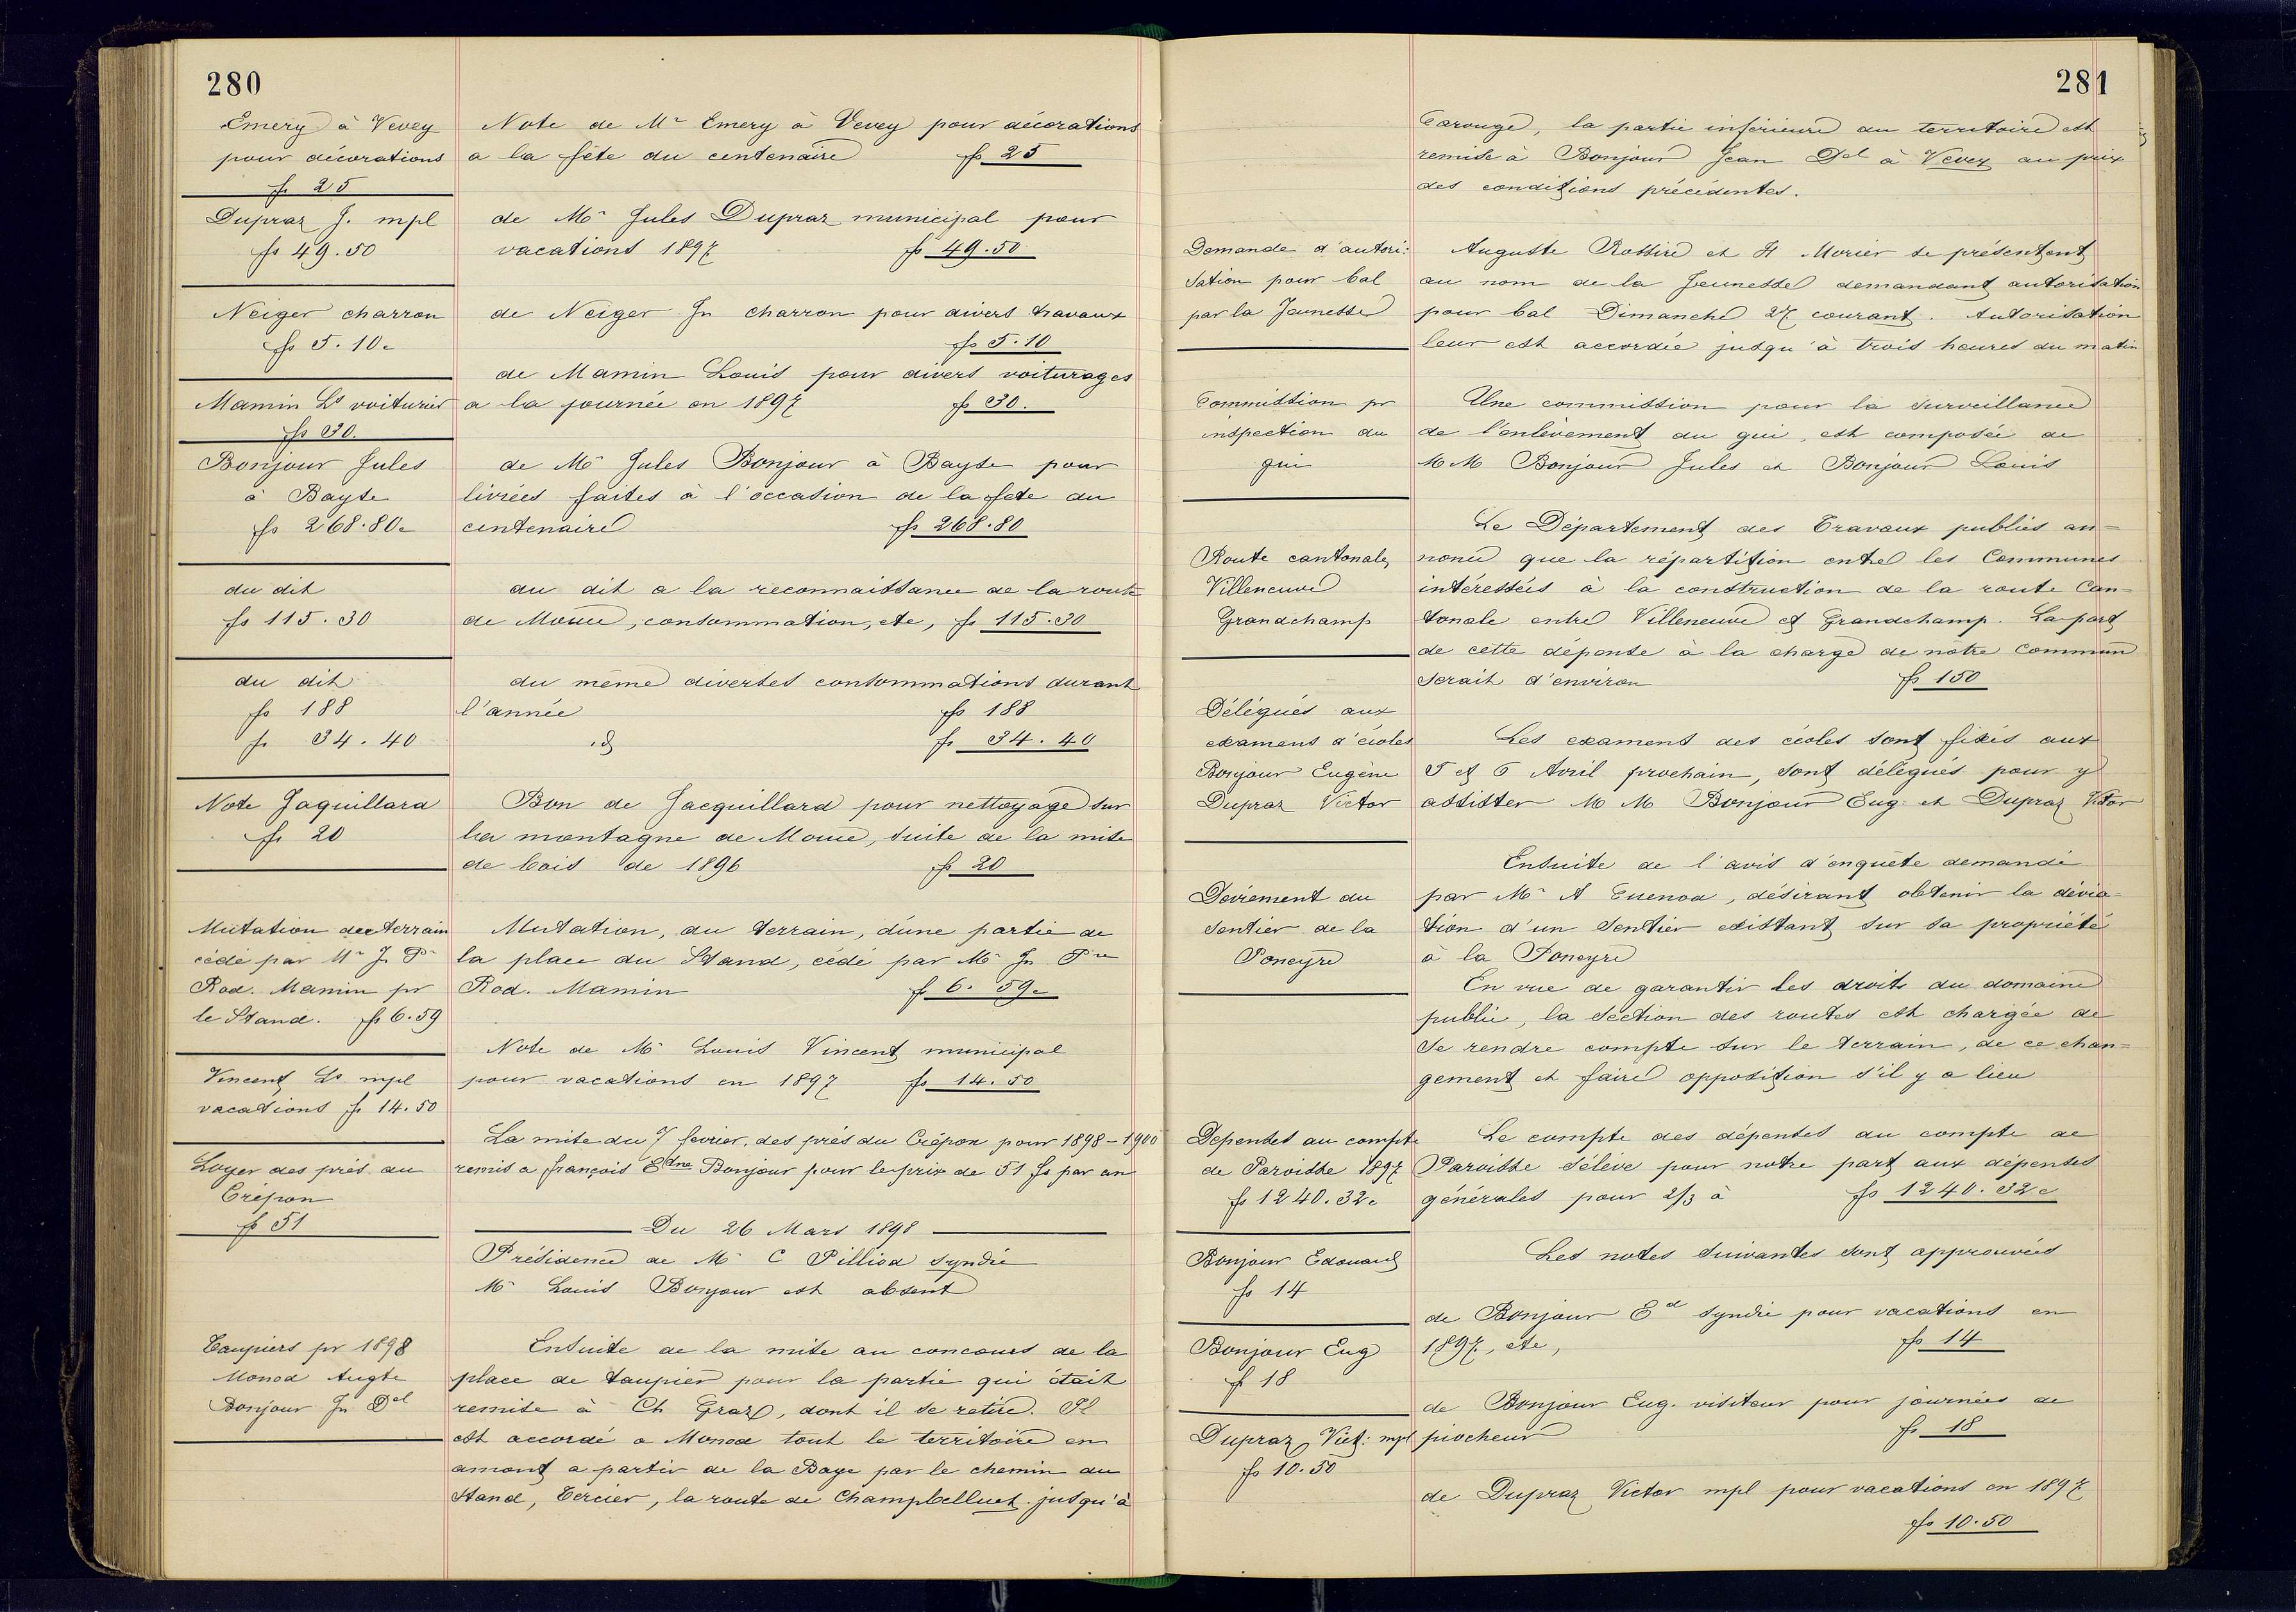 280
Emery à Vevey
pour décorations
fs 25
Dupraz J. mpl
fs 49.50
Neiger charron
fs 5.10c
Mamin Ls voiturier
fs 30.
Bonjour Jules
à Bayse
fs 268.80c
du dit
fs 115.30
du dit
fs 188
fs 34.40
Note Jaquillard
fs 20
Mutation de terrain
cédé par Mr J. Pre
Rod. Mamin pr
le Stand. fs 6.59
Vincent Ls mpl
vacations fs 14.50
Loyer des prés du
Crépon
fs 51
Taupiers pr 1898
Monod Augte
Bonjour Jn Del
Note de Mr Emery à Vevey pour décorations
a la fête du centenaire fs 25
de Mr Jules Dupraz municipal pour
vacations 1897 fs 49.50
de Neiger Jn charron pour divers travaux
fs 5.10
de Mamin Louis pour divers voiturages
a la journée en 1897 fs 30.
de Mr Jules Bonjour à Bayse pour
livrées faites à l'occasion de la fete du
centenaire fs 268.80
du dit a la reconnaissance de la route
de Mouie, consommation, etc, fs 115.30
du même diverses consommations durant
l'année fs 188
id fs 34.40
Bon de Jacquillard pour nettoyage sur
la montagne de Mouie, suite de la mise
de bois de 1896 fs 20
Mutation, du terrain, d'une partie de
la place du Stand, cédé par Mr Jn Pre
Rod. Mamin f 6.59c
Note de Mr Louis Vincent municipal
pour vacations en 1897 fs 14.50
La mise du 7 fevrier, des prés du Crépon pour 1898-1900
remis a françois Edne Bonjour pour le prix de 51 fs par an
Du 26 Mars 1898
Présidence de Mr C Pilliod syndic
Mr Louis Bonjour est absent
Ensuite de la mise au concours de la
place de taupier pour la partie qui était
remise à Ch Graz, dont il se retire. Il
est accordé a Monod tout le territoire en
amont a partir de la Baye par le chemin du
Stand, Tercier, la route de Champbelluet jusqu'à
281
Carouge, la partie inférieure du territoire est
remise à Bonjour Jean Del à Vevey au prix
des conditions précédentes.
Demande d'autori:
sation pour bal
par la Jeunesse
Auguste Rossire et H Morier se présentent
au nom de la Jeunesse demandant autorisation
pour bal Dimanche 27 courant. Autorisation
leur est accordée jusqu'à trois heures du matin
Commission pr
inspection du
gui
Une commission pour la surveillance
de l'enlèvement du gui, est composée de
MM Bonjour Jules et Bonjour Louis
Route cantonale,
Villeneuve
Grandchamp
Le Département des Travaux publics an=
nonce que la répartition entre les Communes
intéressées à la construction de la route Can=
tonale entre Villeneuve et Grandchamp. La part
de cette dépense à la charge de notre Commune
serait d'environ fs 150
Délégués aux
examens d'écoles
Bonjour Eugène
Dupraz Victor
Les examens des écoles sont fixés aux
5 et 6 Avril prochain, sont délégués pour y
assister M M Bonjour Eug: et Dupraz Vctor
Dévirement du
sentier de la
Poneyre
Ensuite de l'avis d'enquête demandé
par Mr A Cuenod, désirant obtenir la dévia=
tion d'un sentier existant sur sa propriété
à la Poneyre
En vue de garantir les droits du domaine
public, la section des routes est chargée de
se rendre compte sur le terrain, de ce chan=
gement et faire opposition s'il y a lieu
Depenses au compte
de Paroisse 1897
fs 1240.32c
Le compte des dépenses du compte de
Paroisse s'élève pour notre part aux dépenses
générales pour 2/3 à fs 1240.32c
Les notes suivantes sont approuvées
Bonjour Edouard
fs 14
de Bonjour Ed syndic pour vacations en
1897, etc, fs 14
Bonjour Eug
f 18
de Bonjour Eug. visiteur pour journées de
piocheur fs 18
Dupraz, Vict: mpl
fs 10.50
de Dupraz Victor mpl pour vacations en 1897
fs 10.50